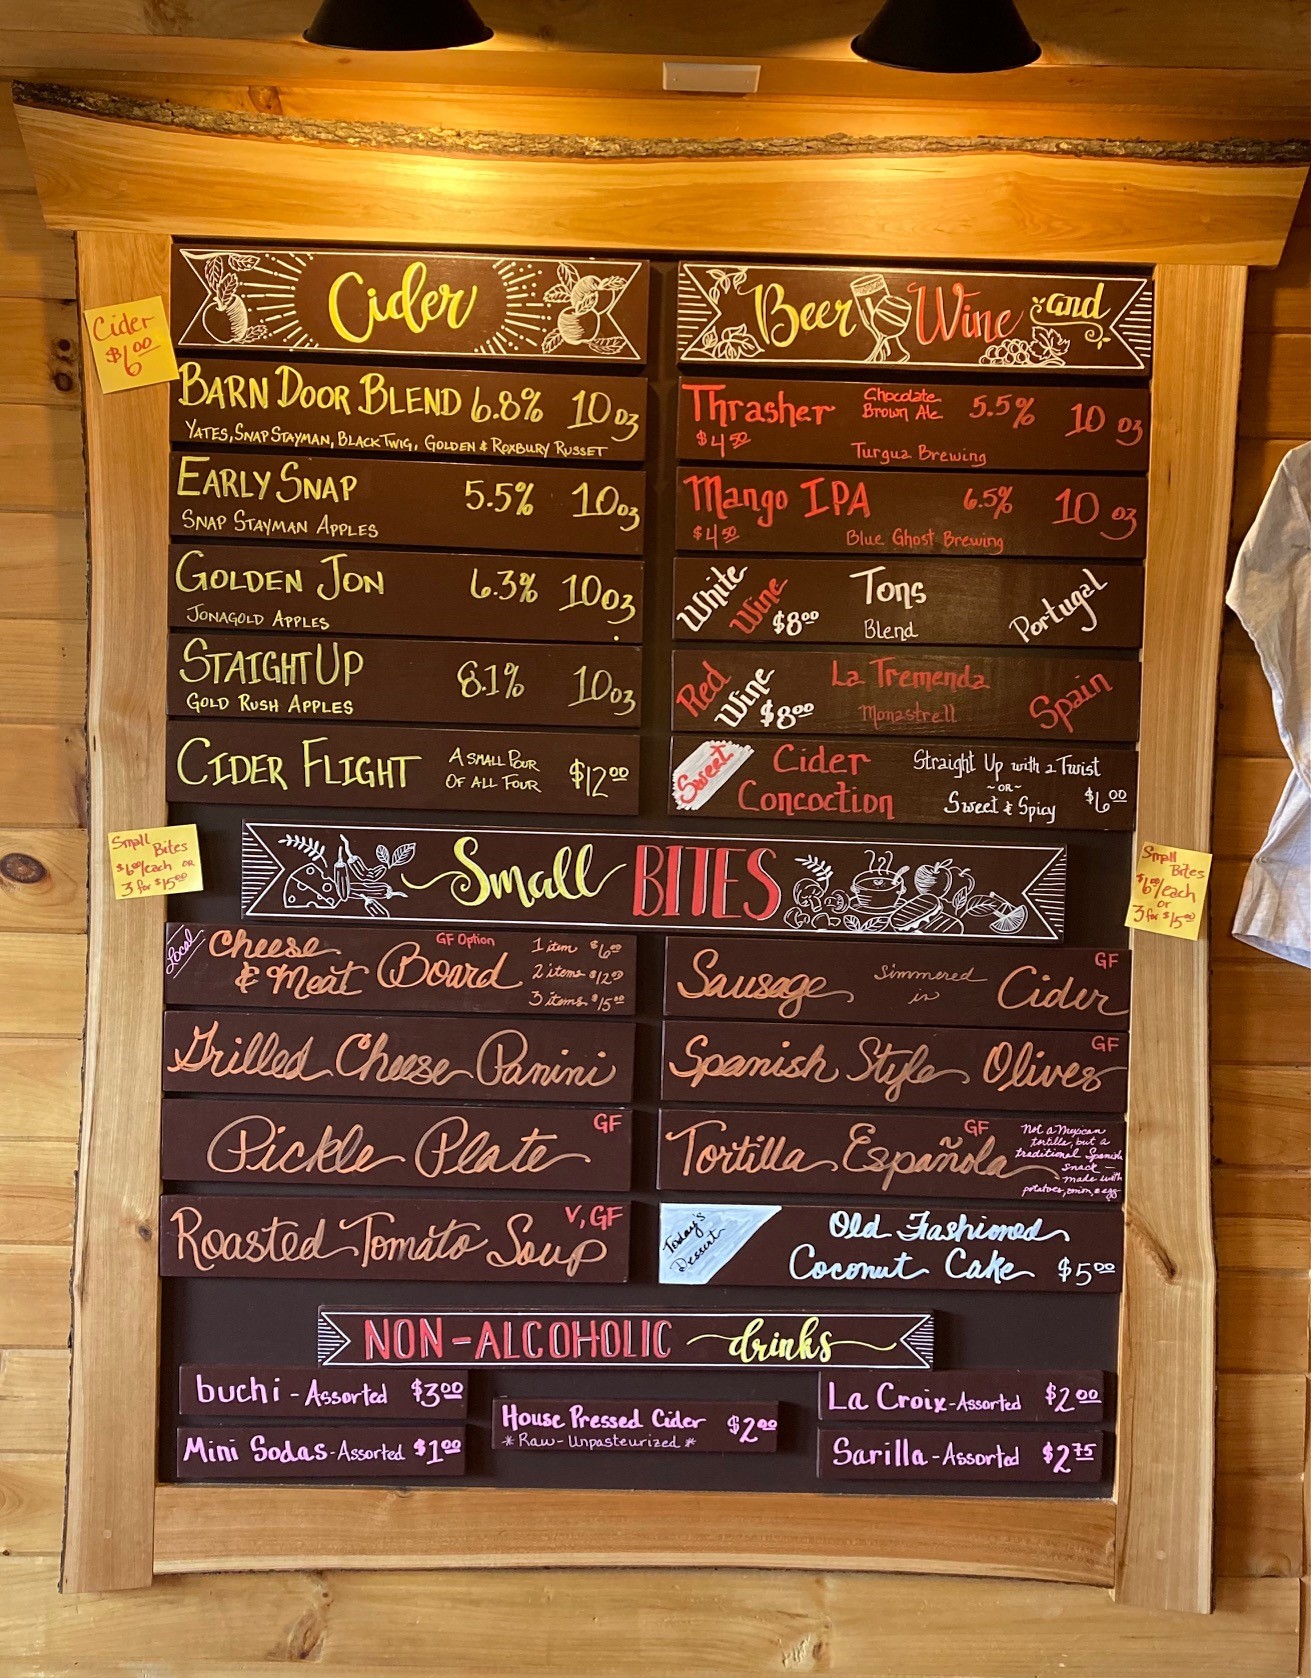 Cider
Cider
$6.00
BARN DOOR BLEND 6.8% 10 oz
YATES, SNAP STAYMAN, BLACK TWIG, GOLDEN & ROXBURY RUSSET
EARLY SNAP 5.5% 10 oz
SNAP STAYMAN APPLES
GOLDEN JON 6.3% 10 oz
JONAGOLD APPLES
STAIGHT UP 8.1% 10 oz
GOLD RUSH APPLES
CIDER FLIGHT A SMALL POUR $12.00
OF ALL FOUR
Beer Wine and
Thrasher Chocolate 5.5% 10 oz
Brown Ale
$4.50 Turgua Brewing
Mango IPA 6.5% 10 oz
$4.50 Blue Ghost Brewing
White Wine $8.00 Tons Portugal
Blend
Red Wine $8.00 La Tremenda Spain
Monastrell
Sweet Cider Straight Up with a Twist
~OR~
Concoction Sweet & Spicy $6.00
Small
Bites
$6.00/each OR
3 for $15.00
Small BITES
Small
Bites
$6.00/each
or
3 for $15.00
Local Cheese GF Option 1 item $6.00
& Meat Board 2 items $12.00
3 items $15.00
Grilled Cheese Panini
Pickle Plate GF
Roasted Tomato Soup V, GF
Sausage simmered in Cider GF
Spanish Style Olives GF
Tortilla Española GF
Not a Mexican
tortilla, but a
traditional Spanish
snack —
made with
potatoes, onion, & egg
Today's
Dessert
Old Fashioned
Coconut Cake $5.00
NON-ALCOHOLIC drinks
buchi - Assorted $3.00
Mini Sodas - Assorted $1.00
House Pressed Cider $2.00
* Raw - Unpasteurized *
La Croix - Assorted $2.00
Sarilla - Assorted $2.75